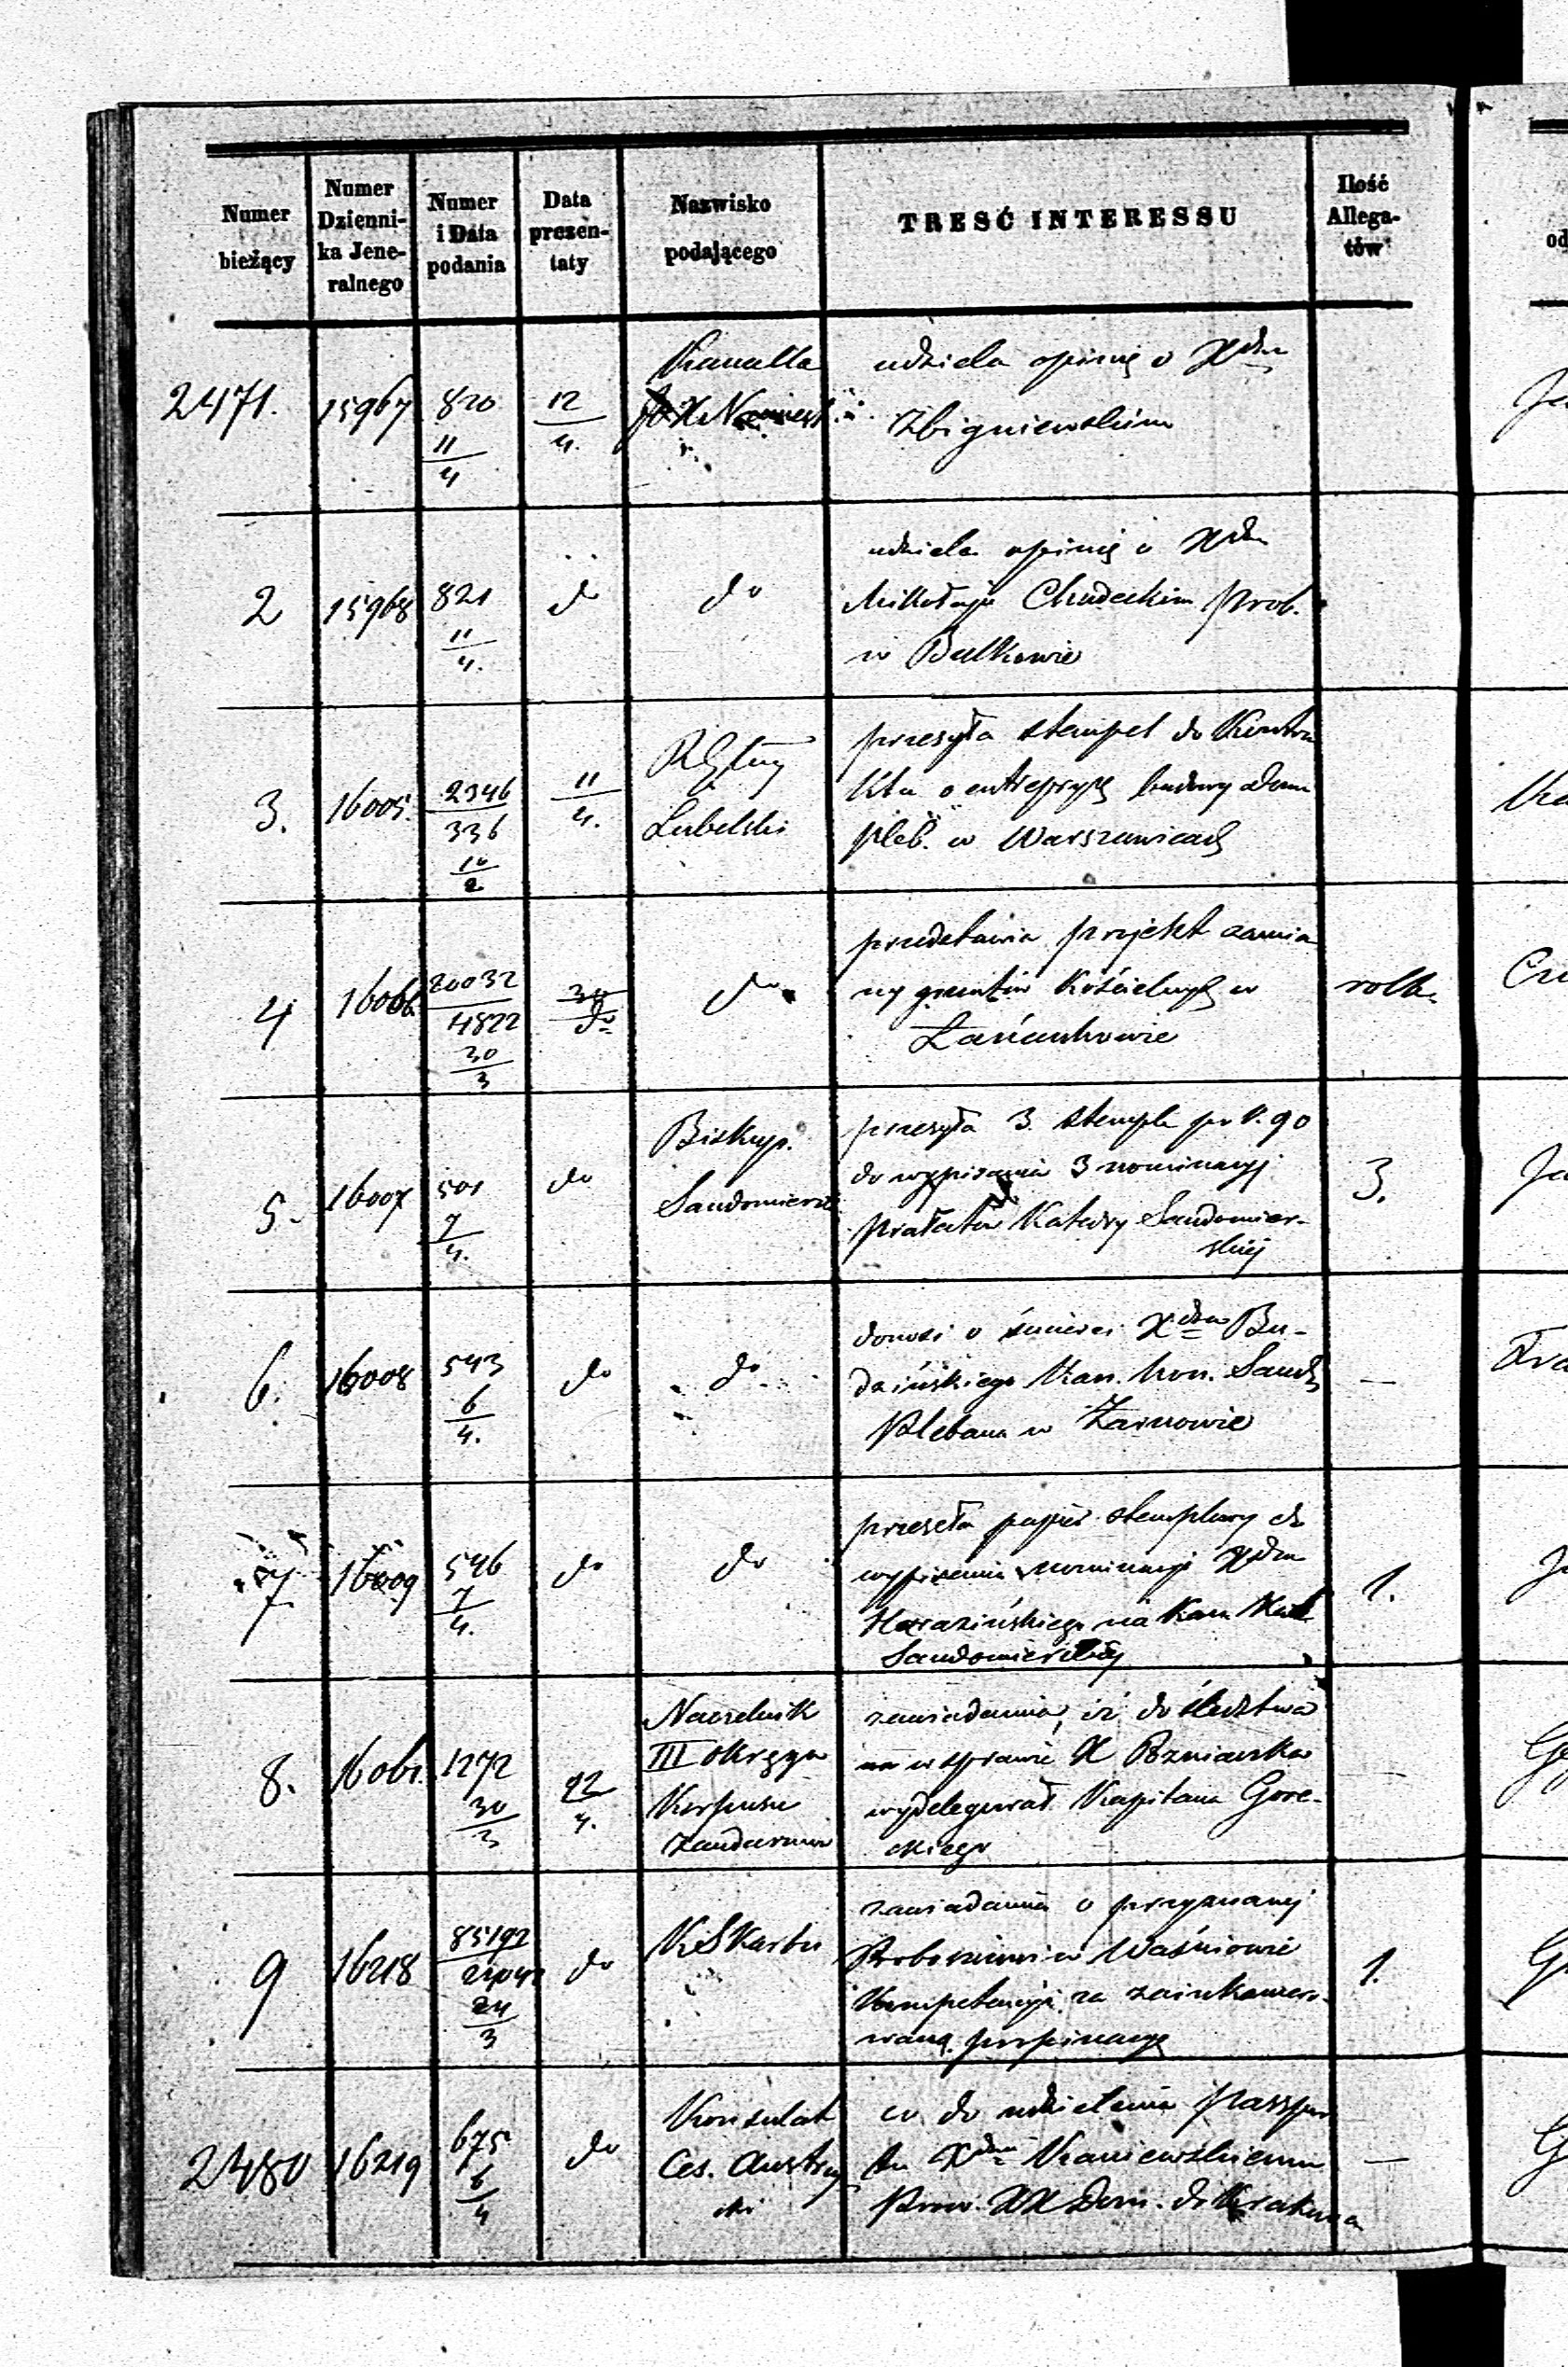 Numer bieżący
Numer Dzienni-ka Jene-ralnego
Numer i Data podania
Data prezen-taty
Nazwisko podającego
TREŚĆ INTERESSU
Ilość Allega-tów
2471. 15967 820 11/4 12/4.
Kancella
udziela opinię o Xdzu
Zbigniewskim
2 15968 821 11/4. do do
udziela opinię o Xdzu
Mikołaju Chudeckim prob.
w Bulkowie
3. 16005. 2346/336 10/2 11/4.
Rz Gbny
Lubelski
przesyła stempel do Kontra
ktu o entrepryzę budowy domu
pleb. w Warszawicach
4 16006 20032/4822 30/3 do do
przedstawia projekt zamia
ny gruntów Kościelnych w
Łańcuchowie
rolka
5. 16007 501 7/4. do
Biskup.
Sandomierski
przesyła 3. stemple po k. 90
do wypisania 3 nominacyj
Prałatów Katedry Sandomier-
skiej
3.
6. 16008 543 6/4. do do
donosi o śmierci Xdza Bu-
dzińskiego Kan. hon. Sand.
Plebana w Żarnowie
—
7 16009 546 7/4. do do
przesyła papier stemplowy do
wypisania nominacyi Xdza
Harasińskiego na Kan. Kat.
Sandomierskiej
1.
8. 16061. 1272 30/3 12/4.
Naczelnik
III Okręgu
Korpusu
Żandarmów
zawiadamia, iż do śledztwa
w sprawie X Pozniawska
wydelegował Kapitana Gore-
ckiego
9 16218 85192/24042 24/3 do
K S Karbu
zawiadamia o przyznanej
Proboszczowi w Waśniowie
Kompetencyi za zainkamero-
waną propinacyę
1.
2480 16219 675 6/4 do
Konsulat
Ces. Austry
cki
co do udzielenia passpor
tu Xdzu Kaniewskiemu
Prow. XX Dom. do Krakowa
—